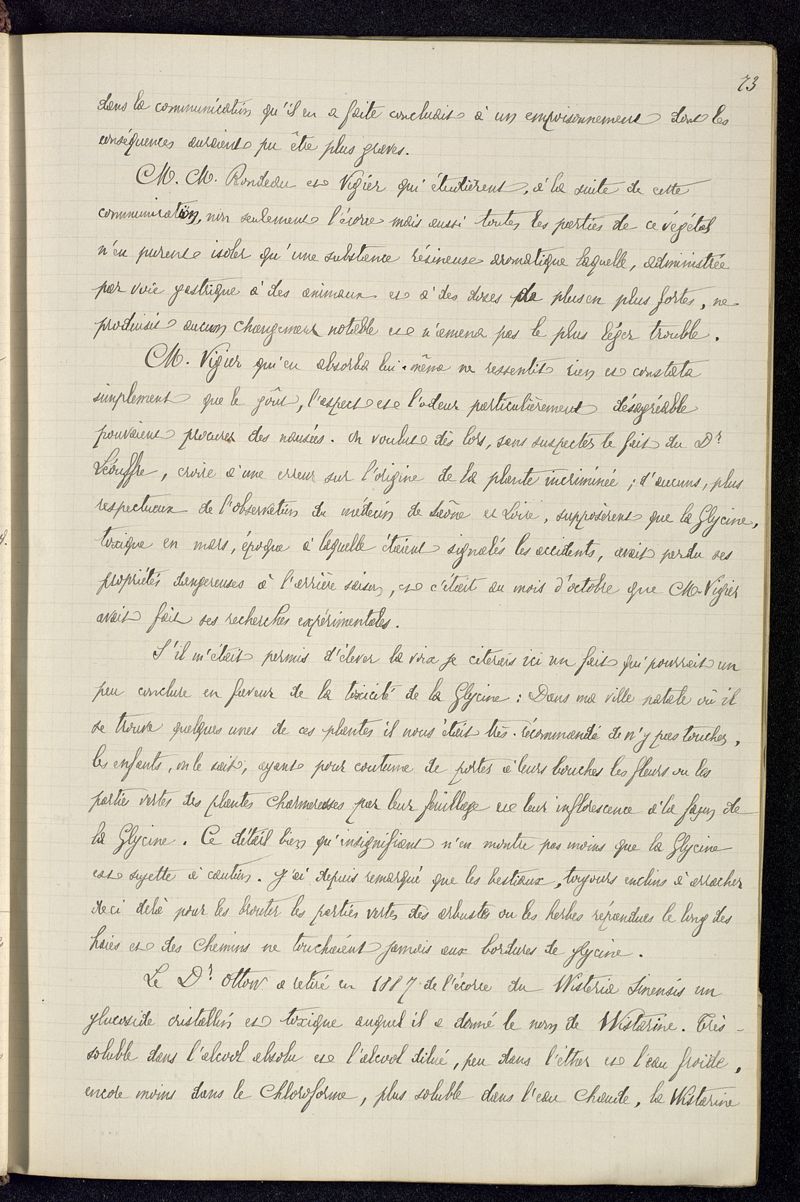 73
dans la communication qu'il en a faite concluait à un empoisonnement dont les
conséquences auraient pu être plus graves.
M. M. Rondeau et Vigier qui étudièrent, à la suite de cette
communication, non seulement l'écorce mais aussi toutes les parties de ce végétal
n'en purent isoler qu'une substance résineuse aromatique laquelle, administrée
par voie gastrique à des animaux et à des doses de plus en plus fortes, ne
produisit aucun changement notable et n'amena pas le plus léger trouble.
M. Vigier qui en absorba lui-même ne ressentit rien et constata
simplement que le goût, l'aspect et l'odeur particulièrement désagréable
pouvaient procurer des nausées. On voulut dès lors, sans suspecter le fait du Dr
Léouffre, croire à une erreur sur l'origine de la plante incriminée ; d'aucuns, plus
respectueux de l'observation du médecin de Saône et Loire, supposèrent que la Glycine,
toxique en mars, époque à laquelle étaient signalés les accidents, avait perdu ses
propriétés dangereuses à l'arrière saison, et c'était au mois d'octobre que M. Vigier
avait fait ses recherches expérimentales.
S'il m'était permis d'élever la voix je citerais ici un fait qui pourrait un
peu conclure en faveur de la toxicité de la Glycine : Dans ma ville natale où il
se trouve quelques unes de ces plantes il nous était très-recommandé de n'y pas toucher,
les enfants, on le sait, ayant pour coutume de porter à leurs bouches les fleurs ou les
parties vertes des plantes charmeresses par leur feuillage et leur inflorescence à la façon de
la Glycine. Ce détail bien qu'insignifiant n'en montre pas moins que la Glycine
est sujette à caution. J'ai depuis remarqué que les bestiaux, toujours enclins à arracher
deci delà pour les brouter les parties vertes des arbustes ou les herbes répandues le long des
haies et des chemins ne touchaient jamais aux bordures de glycine.
Le Dr Ottow a retiré en 1887 de l'écorce du Wisteria Sinensis un
glucoside cristallin et toxique auquel il a donné le nom de Wistarine. Très-
soluble dans l'alcool absolu et l'alcool dilué, peu dans l'éther et l'eau froide,
encore moins dans le Chloroforme, plus soluble dans l'eau chaude, la Wistarine